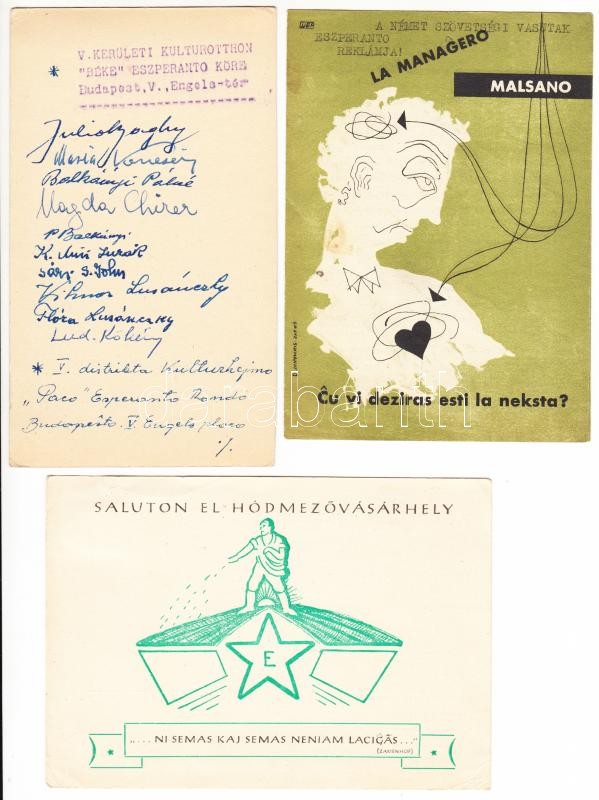 V. KERÜLETI KULTUROTTHON
* "BÉKE" ESZPERANTO KÖRE
Budapest, V., Engels-tér
Julio Baghy
Maria
Balkányi Pálné
Magda
P Balkányi
K.
Sárj. S. John
Viktor Lusánczky
Flóra Lusánczky
Lud. Kökény
* V. distrikta Kulturhejmo
„Paco" Esperanto Rondo
Budapeŝto. V. Engels placo
./.
A NÉMET SZÖVETSÉGI VASUTAK
ESZPERANTO
REKLÁMJA!
LA MANAGERO
MALSANO
Ĉu vi deziras esti la neksta?
darabanth
SALUTON EL HÓDMEZŐVÁSÁRHELY
E
„... NI SEMAS KAJ SEMAS NENIAM LACIĜAS..."
(ZAMENHOF)